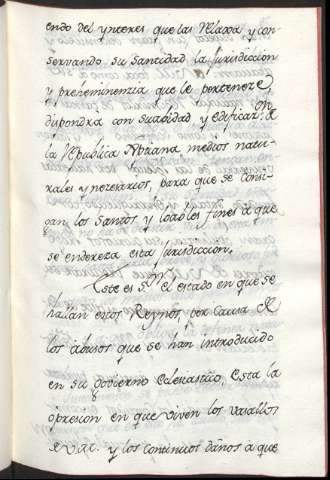 endo del ynteres que las relaxa, y con
servando su Santidad la Jurisdiccion
y preheminenzia que le pertenece,
dispondra con suavidad y edificaz.n de
la Republica Xptiana medios natu-
rales y nezesarios, para que se consi-
gan los Santos y loables fines a que
se endereza esta Jurisdiccion.
Este es S.r el estado en que se
hallan estos Reynos, por causa de
los abusos que se han introducido
en su govierno eclesiastico, Esta la
opresion en que viven los vasallos
de V.M. y los continuos daños a que